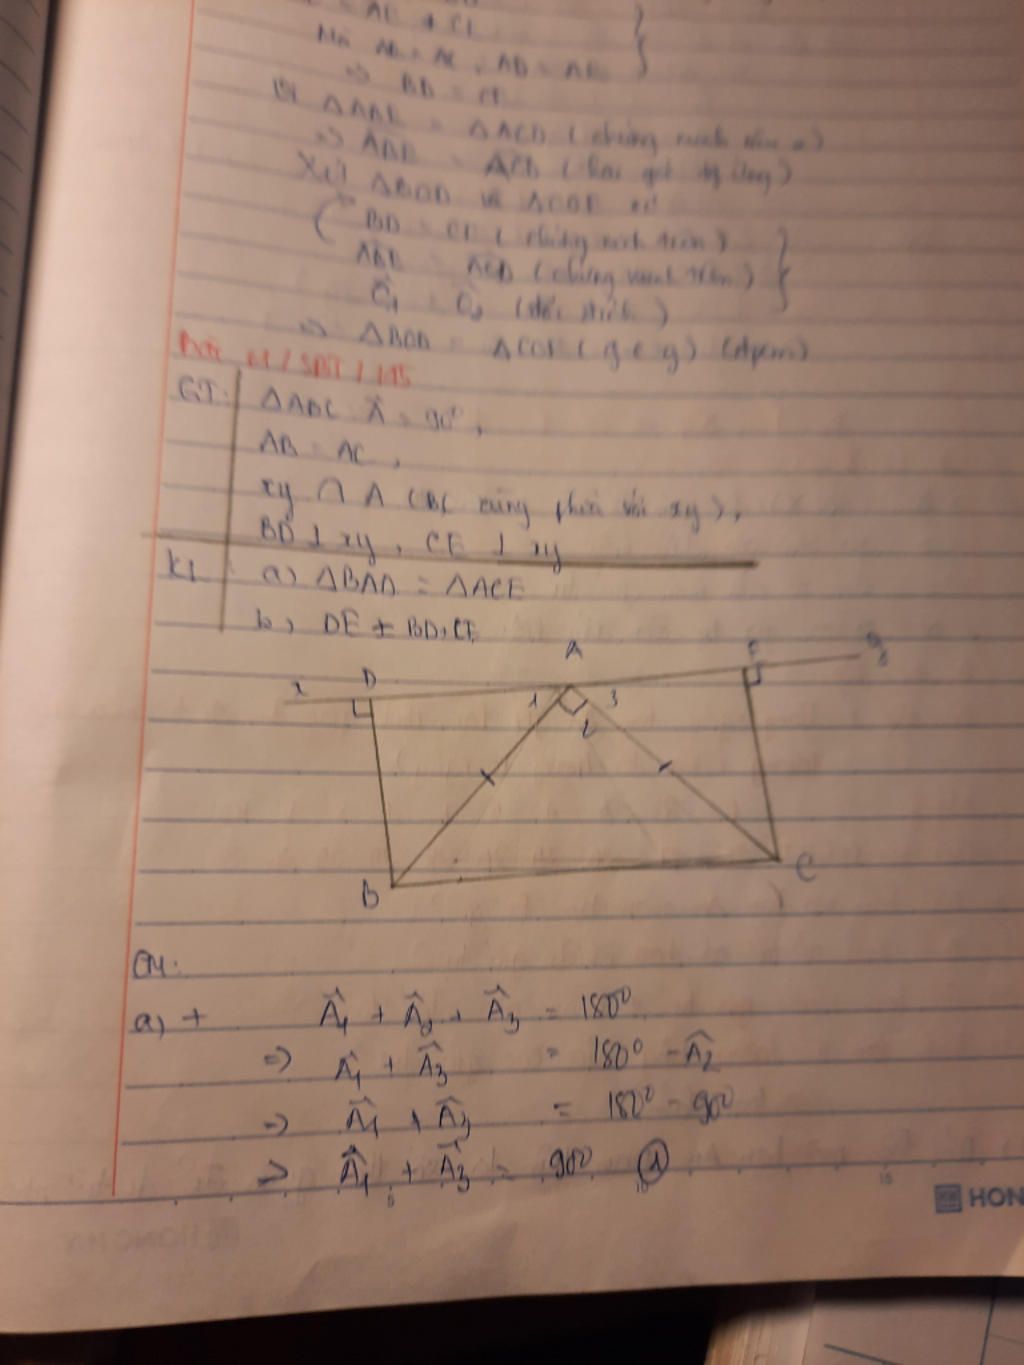 = AE + CE
Mà AB = AC, AD = AE
=> BD = CE
b) ΔABE = ΔACD (chứng minh câu a)
=> ABE = ACD (hai góc tg ứng)
Xét ΔBOD và ΔCOE có
BD = CE (chứng minh trên)
ABE = ACD (chứng minh trên)
(đối đỉnh)
=> ΔBOD = ΔCOE (g c g) (đpcm)
Bài 61 / SBT / 145
GT: ΔABC Â = 90°,
AB = AC,
xy ∩ A (BC cùng phía với xy),
BD ⊥ xy, CE ⊥ xy
KL a) ΔBAD = ΔACE
b, DE = BD+CE
x D A E y
1 2 3
B C
CM:
a) + Â₁ + Â₂ + Â₃ = 180°
=> Â₁ + Â₃ = 180° - Â₂
=> Â₁ + Â₃ = 180° - 90°
=> Â₁ + Â₃ = 90° ①
5 10 15
HON